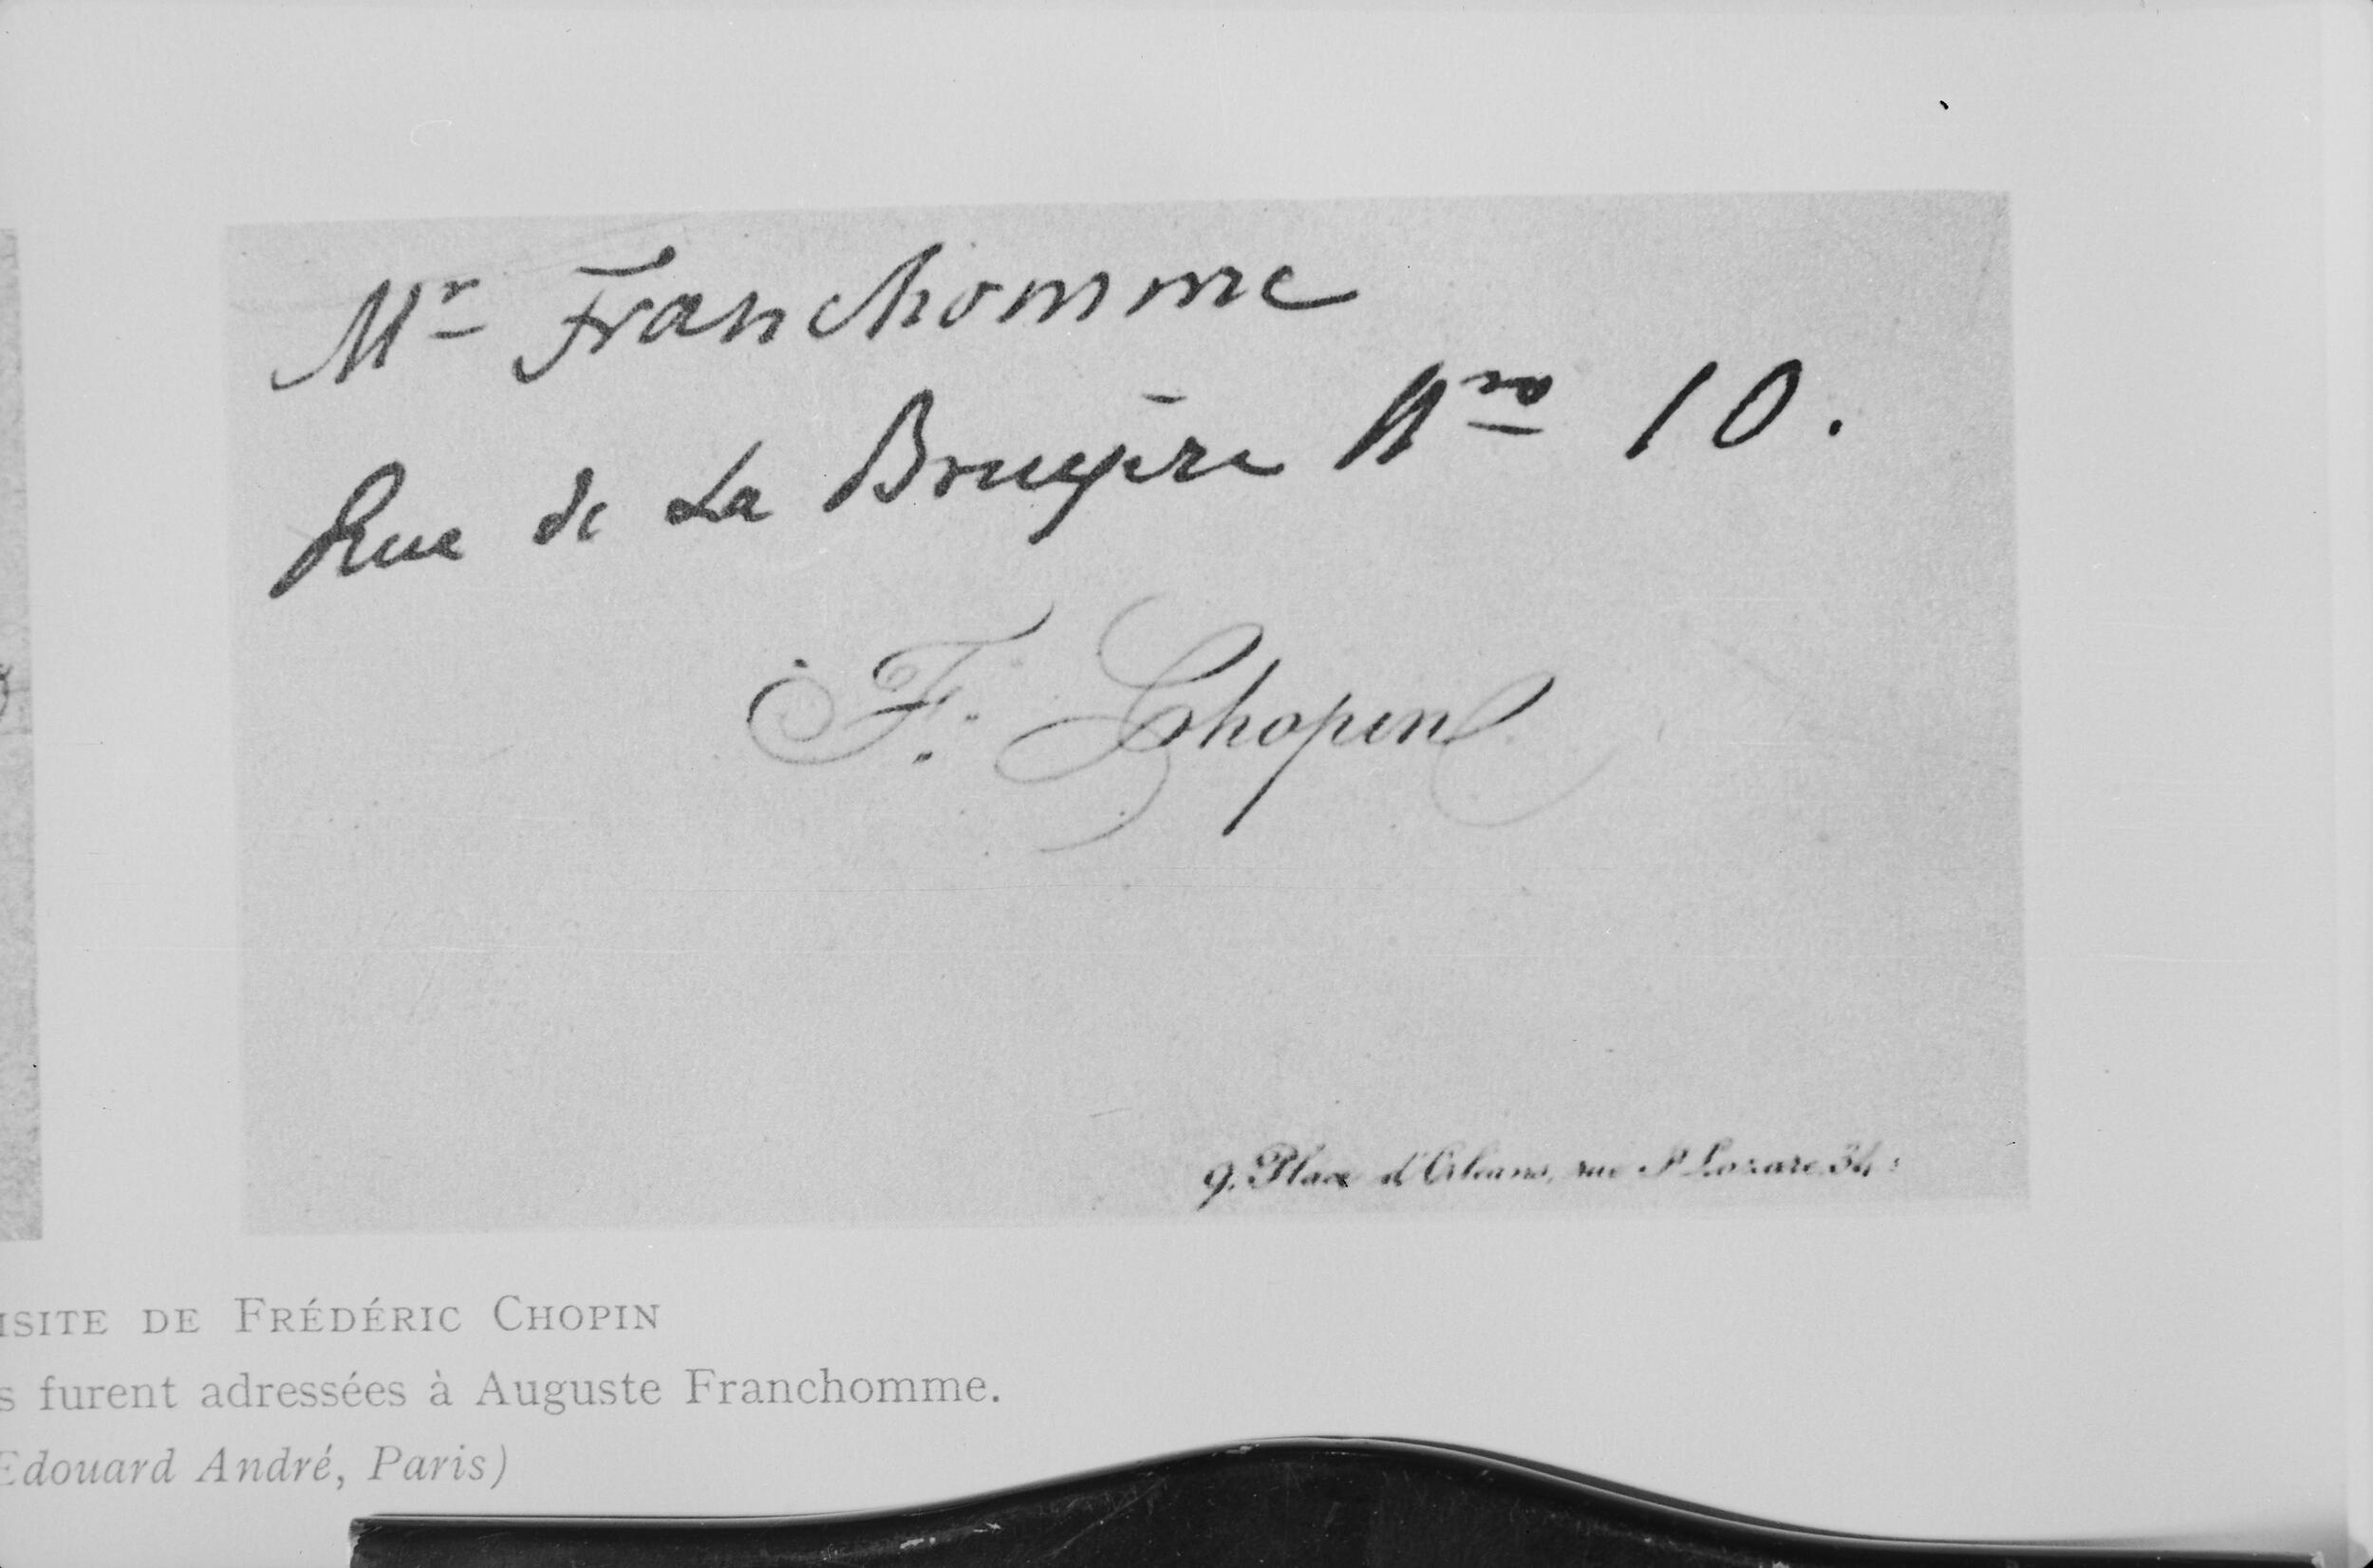 Mr Franchomme
Rue de La Bruyère Nro 10.
F. Chopin
9. Place d'Orléans, rue St Lazare 34.
ISITE DE FRÉDÉRIC CHOPIN
s furent adressées à Auguste Franchomme.
Edouard André, Paris)